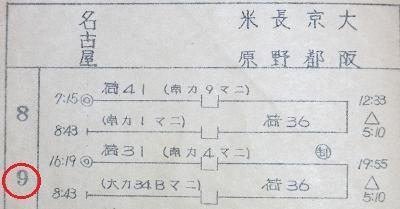 名古屋 米原 長野 京都 大阪
8
7:15 ◎ 荷41 (南カ9マニ) 12:33
8:43 (南カ1マニ) 荷36 △ 5:10
9
16:19 ◎ 荷31 (南カ4マニ) 19:55
8:43 (大カ34Bマニ) 荷36 △ 5:10